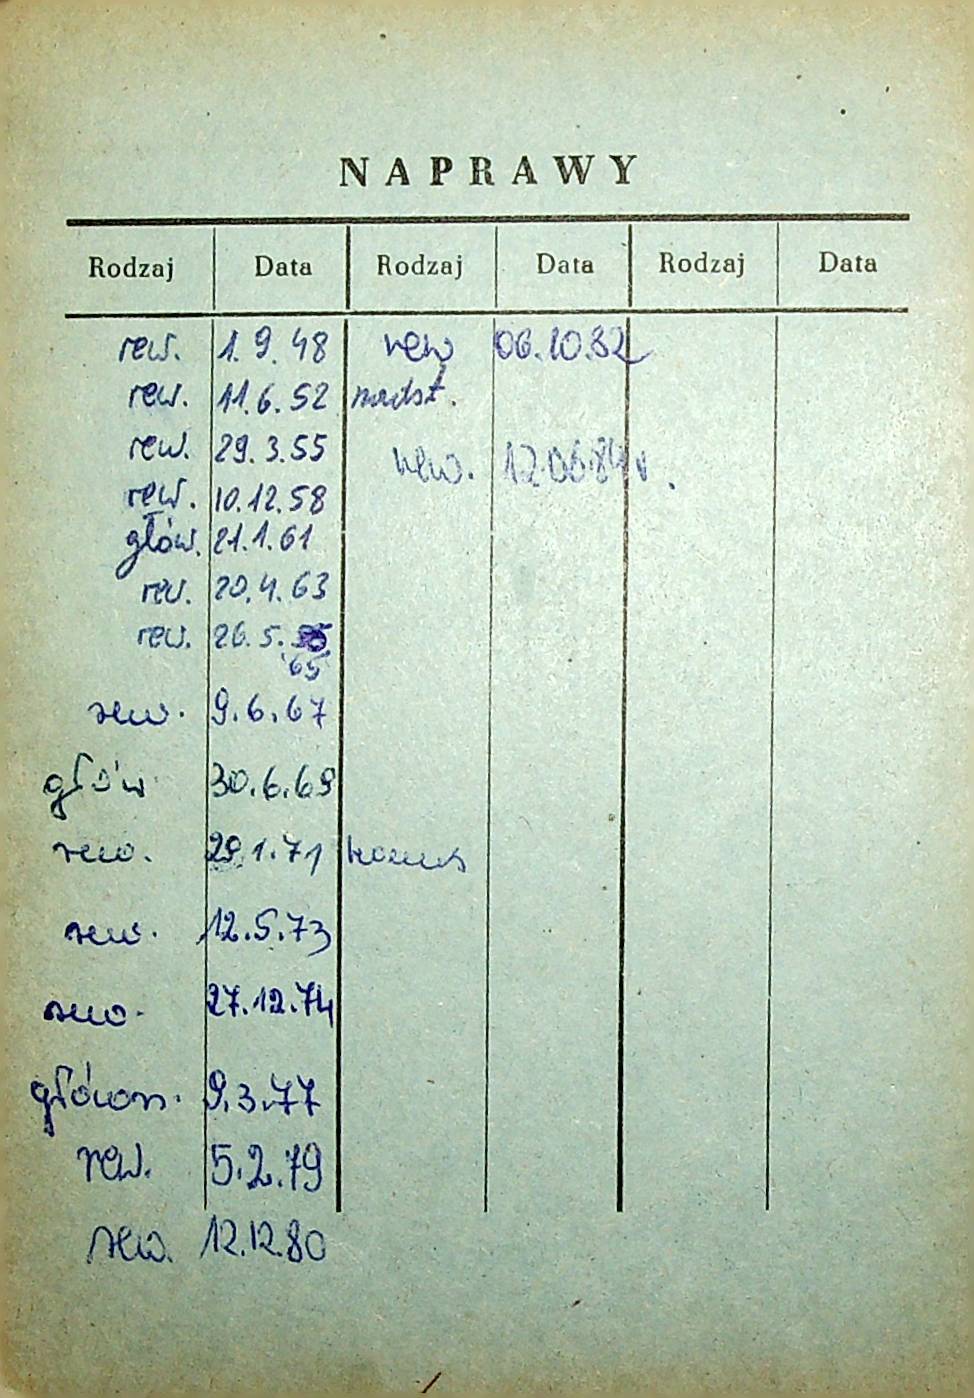 NAPRAWY
Rodzaj Data Rodzaj Data Rodzaj Data
rew. 1.9.48 rew 06.10.82
rew. 11.6.52 nadst.
rew. 29.3.55
rew. 12.06.84 r.
rew. 10.12.58
głów. 21.1.61
rew. 20.4.63
rew. 26.5.
'65
rew. 9.6.67
głów 30.6.69
rew. 29.1.71
rew. 12.5.73
rew. 27.12.74
główn. 9.3.77
rew. 5.2.79
rew. 12.12.80